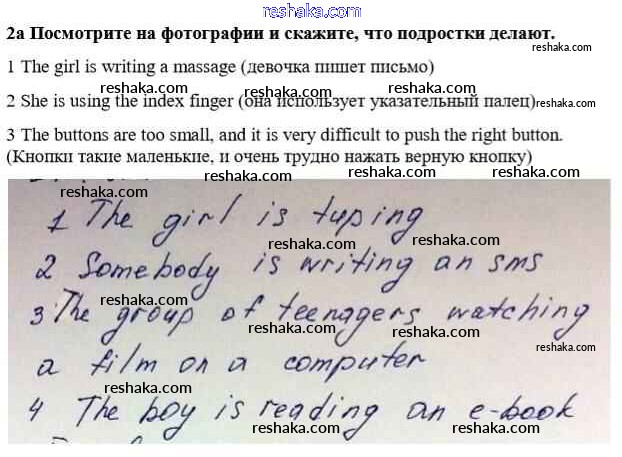 www.reshaka.com
2a Посмотрите на фотографии и скажите, что подростки делают.
reshaka.com
1 The girl is writing a massage (девочка пишет письмо)
reshaka.com
reshaka.com
2 She is using the index finger (она использует указательный палец)
reshaka.com
reshaka.com
3 The buttons are too small, and it is very difficult to push the right button.
(Кнопки такие маленькие, и очень трудно нажать верную кнопку)
reshaka.com
reshaka.com
reshaka.com
1 The girl is tuping
reshaka.com
reshaka.com
2 Somebody is writing an sms
reshaka.com
reshaka.com
3 The group of teenagers watching
reshaka.com
reshaka.com
a film on a computer
reshaka.com
4 The boy is reading an e-book
reshaka.com
reshaka.com
reshaka.com